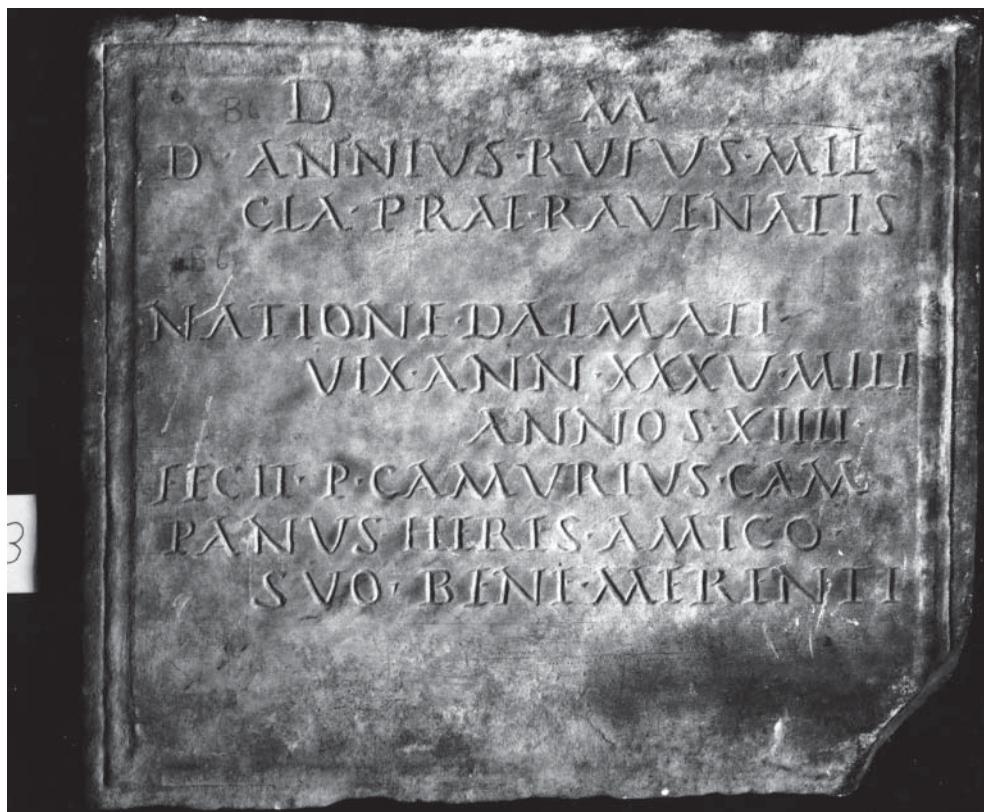 B6 D M
D · ANNIUS · RUFUS · MIL
CLA · PRAE · RAVENATIS
B6
NATIONE · DALMATI
VIX · ANN · XXXV · MILI
ANNOS · XIIII
FECIT · P · CAMURIUS · CAM
PANUS HERES · AMICO ·
SVO · BENE · MERENTI
3